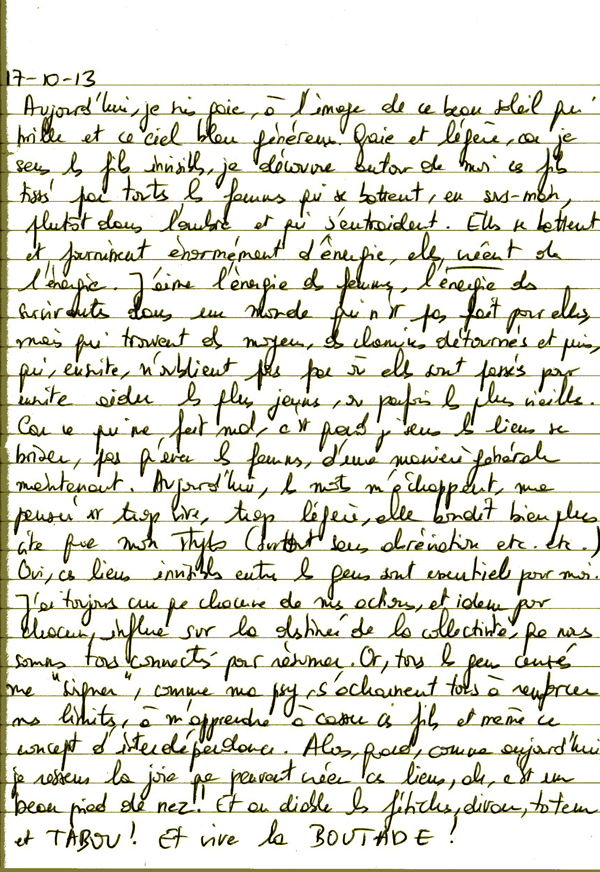 17-10-13
Aujourd'hui, je suis gaie, à l'image de ce beau soleil qui
brille et ce ciel bleu généreux. Gaie et légère, car je
sens les fils invisibles, je découvre autour de moi ces fils
tissés par toutes les femmes qui se battent, en sous-main,
plutôt dans l'ombre et qui s'entraident. Elles se battent
et fournissent énormément d'énergie, elles créent de
l'énergie. J'aime l'énergie des femmes, l'énergie des
survivantes dans un monde qui n'est pas fait pour elles,
mais qui trouvent des moyens, des chemins détournés et puis,
qui, ensuite, n'oublient pas par où elles sont passées pour
ensuite aider les plus jeunes, ou parfois les plus vieilles.
Car ce qui me fait mal, c'est quand je sens les liens se
briser, pas qu'avec les femmes, d'une manière générale
maintenant. Aujourd'hui, les mots m'échappent, ma
pensée est trop vive, trop légère, elle bondit bien plus
vite que mon stylo (surtout sans abréviation etc. etc.)
Oui, ces liens invisibles entre les gens sont essentiels pour moi.
J'ai toujours cru que chacune de nos actions, et idem pour
chacun, influe sur la destinée de la collectivité, que nous
sommes tous connectés pour résumer. Or, tous les gens censés
me "soigner", comme ma psy, s'acharnent tous à renforcer
mes limites, à m'apprendre à casser ces fils et même ce
concept d'interdépendance. Alors, quand, comme aujourd'hui
je ressens la joie que peuvent créer ces liens, ah, c'est un
beau pied de nez! Et au diable les fétiches, divan, totem
et TABOU! Et vive la BOUTADE!